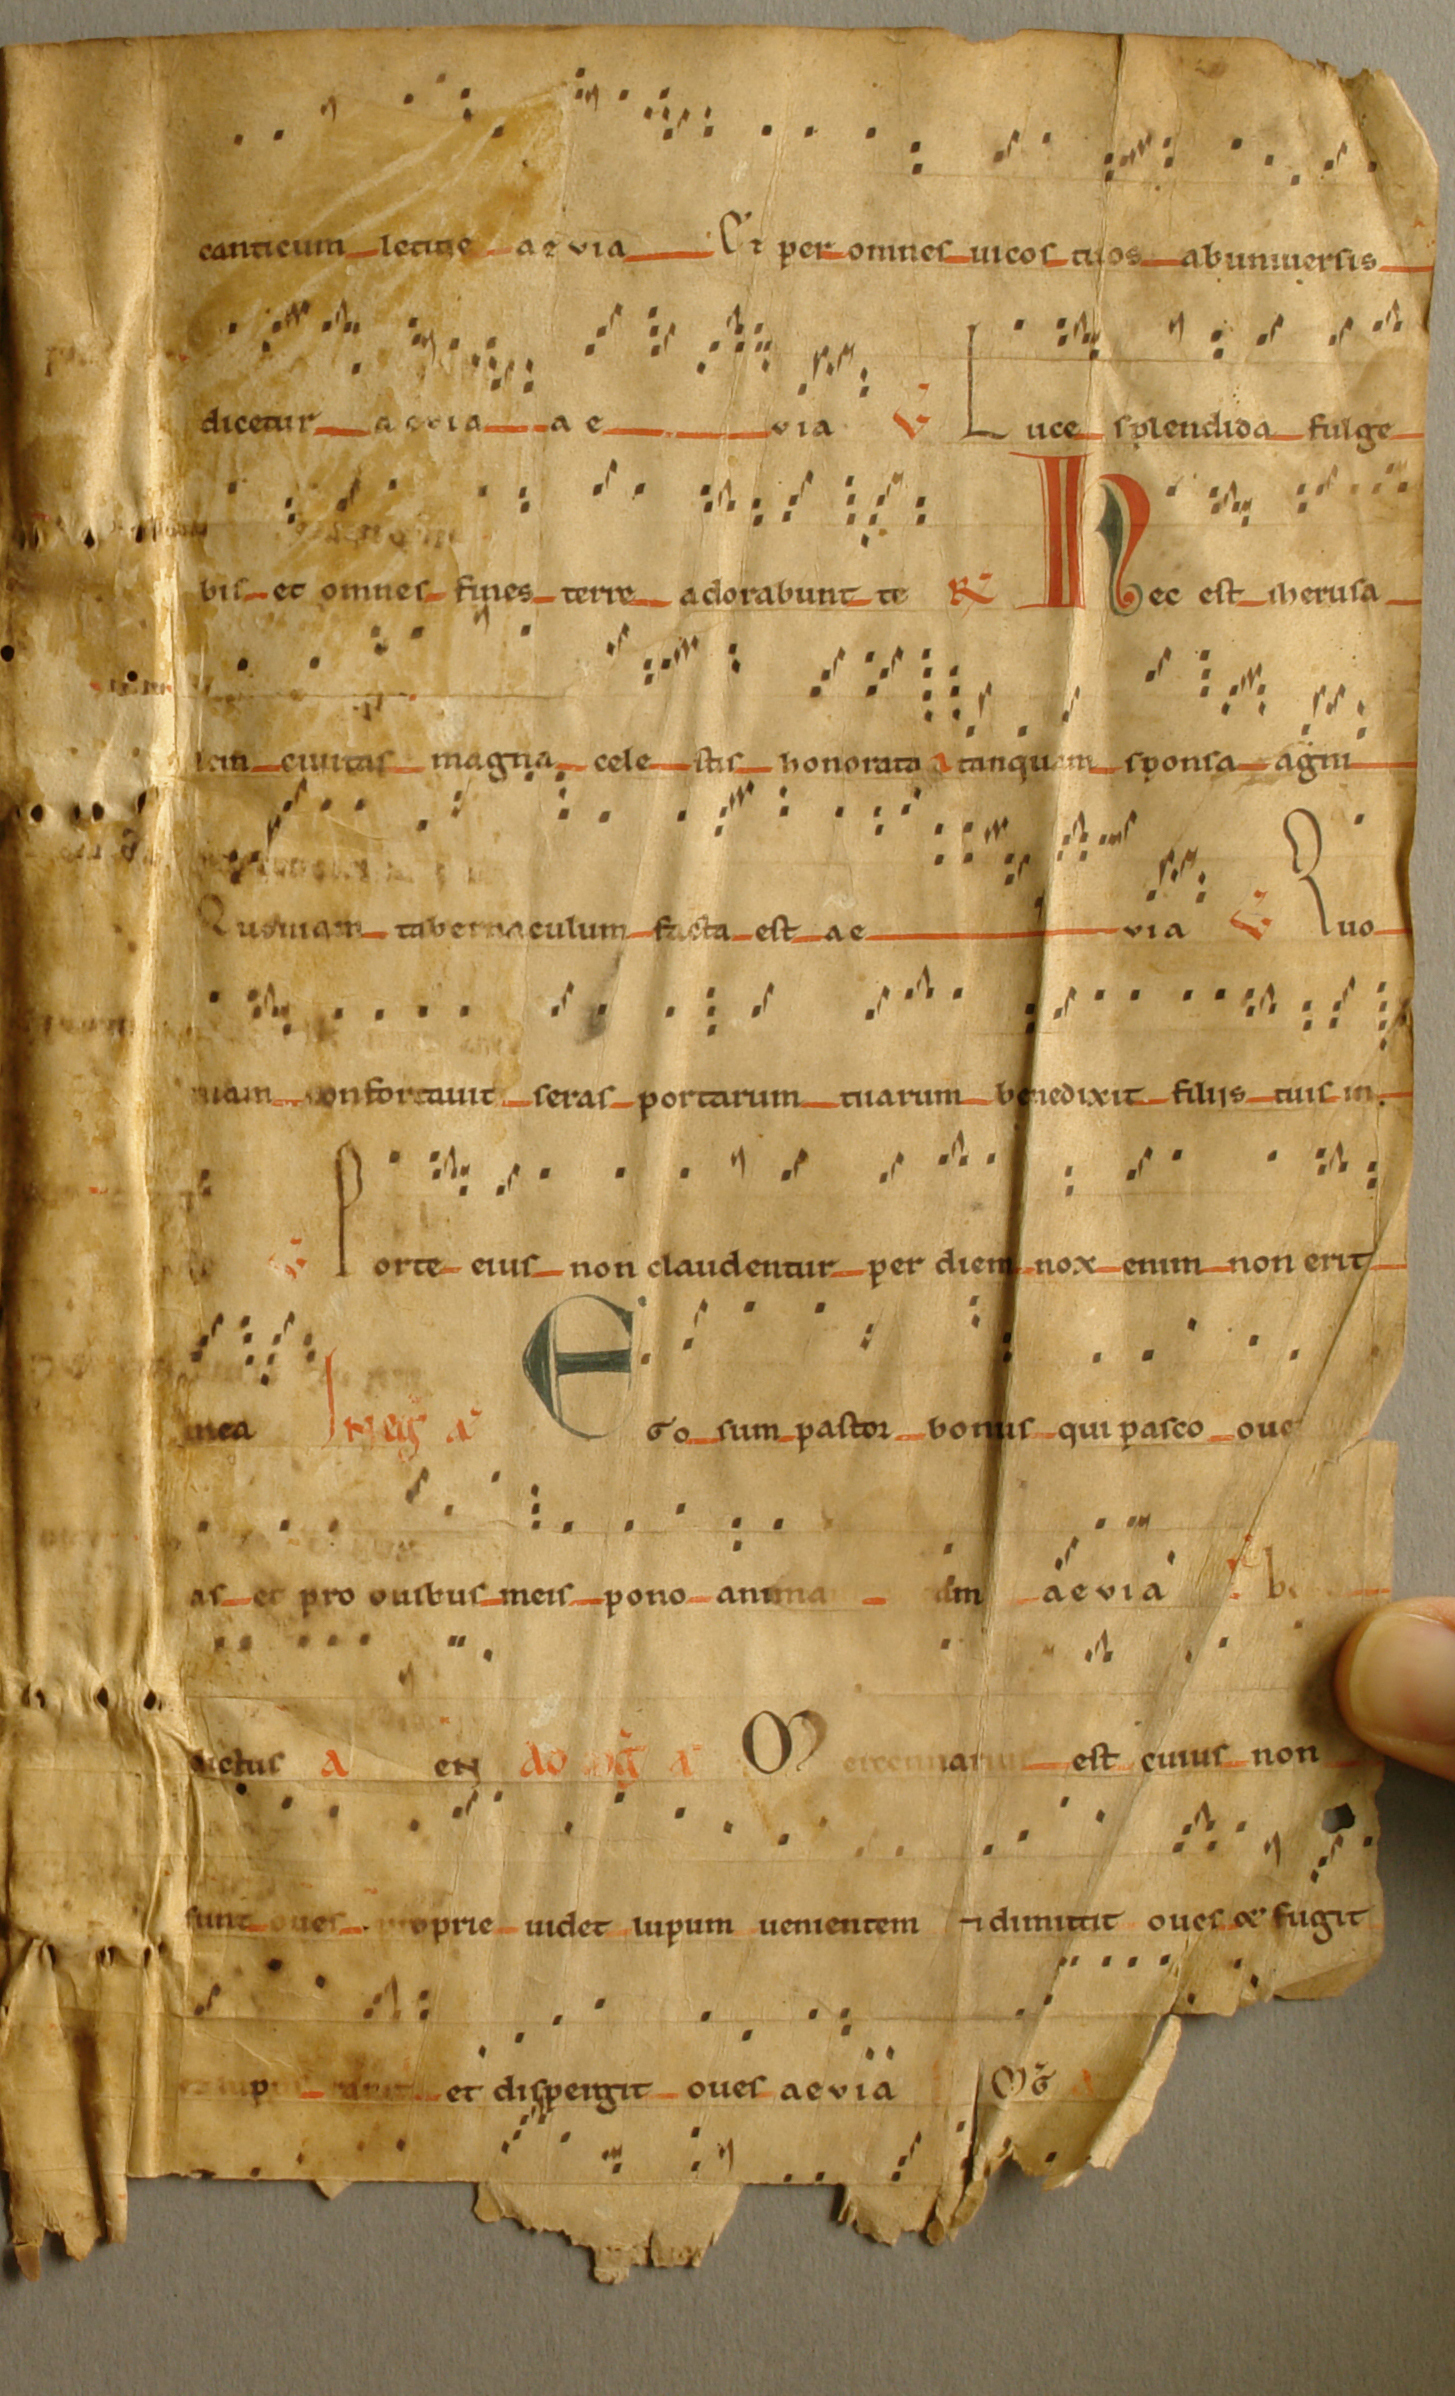 canticum letitie aevia Et per omnes uicos tuos abuniuersis
dicetur aevia ae via V Luce splendida fulge
bis et omnes fines terre adorabunt te R Hec est iherusa
lem ciuitas magna cele stis honorata tanquam sponsa agni
Quoniam tabernaculum facta est ae via V Quo
niam confortauit seras portarum tuarum benedixit filijs tuis in
te V Porte eius non claudentur per diem nox enim non erit
in ea Ego sum pastor bonus qui pasco oue
as et pro ouibus meis pono anima aevia
dictus a en Mercennarius est cuius non
sunt oues proprie uidet lupum uenientem ⁊ dimittit oues et fugit
et lupus rapit et dispergit oues aevia